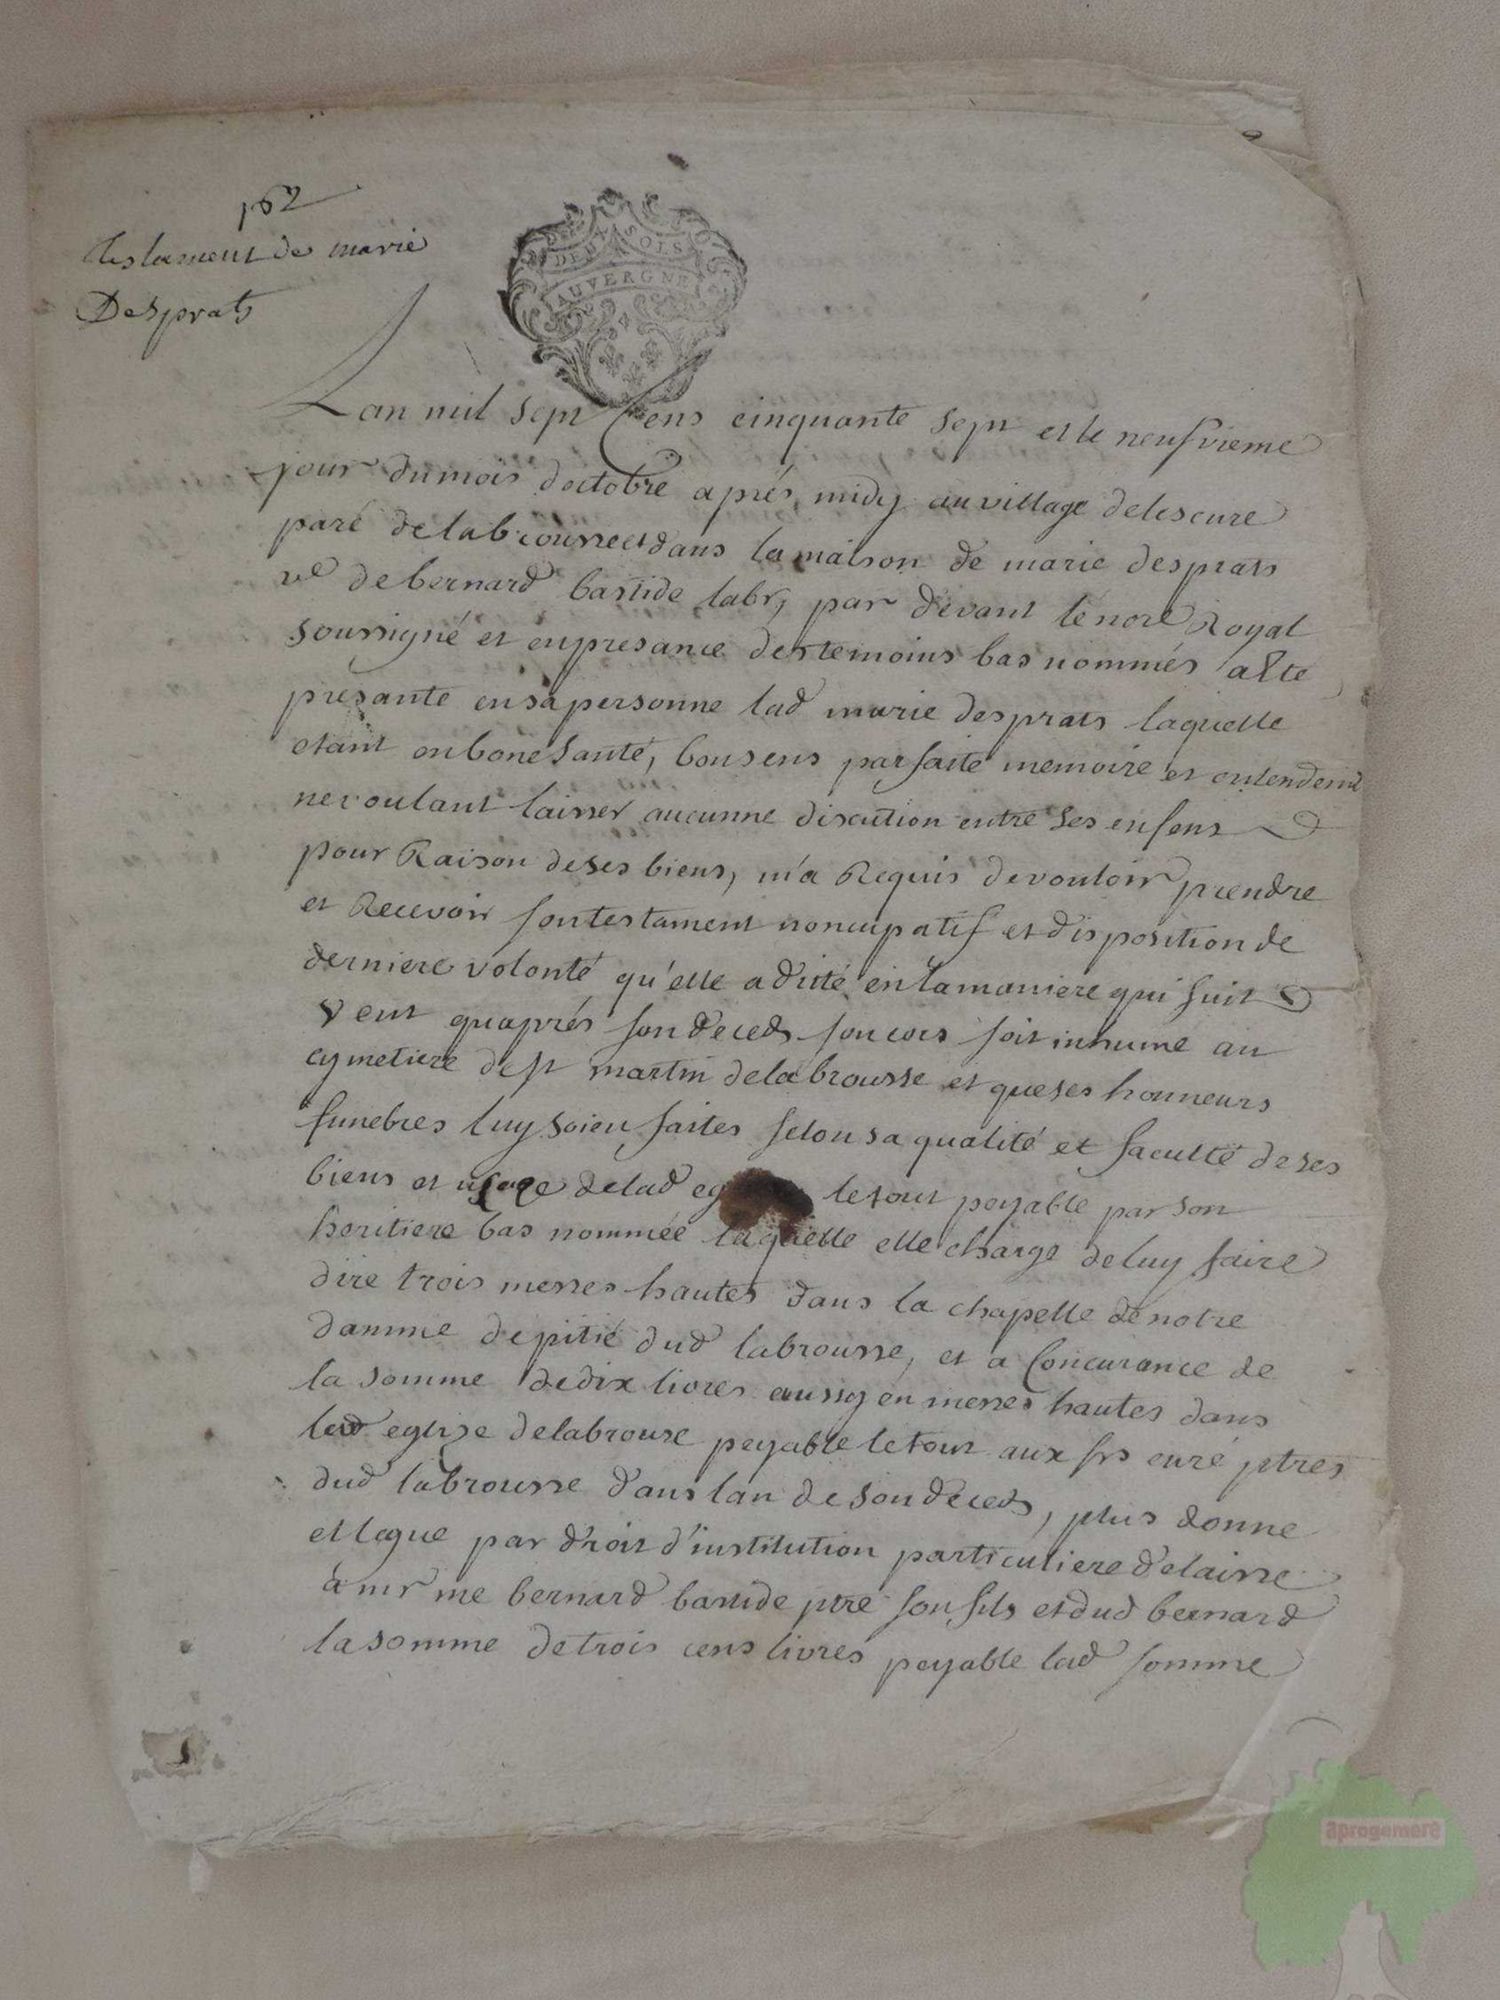 162
testament de marie
Desprats
DEUX SOLS
AUVERGNE
Lan mil sept Cens cinquante sept et le neufvieme
jour du mois doctobre aprés midy au village delescure
paré de labrousse et dans la maison de marie desprats
ve de bernard bastide labr, par devant le nore Royal
soussigné et en presance des temoins bas nommés a Ete
presante en sa personne lad marie desprats laquelle
etant en bone santé, bon sens parfaite memoire et entendemt
ne voulant laisser aucunne discution entre ses enfens
pour Raison de ses biens, m'a Requis de vouloir prendre
et Recevoir son testament noncupatif et disposition de
derniere volonté qu'elle a dité en la maniere qui suit
Veut quaprés son deceds son cors soit inhumé au
cymetiere de st martin de la brousse et que ses honneurs
funebres luy soien faites selon sa qualité et faculté de ses
biens et usage de lad eg le tout peyable par son
heritiere bas nommée laquelle elle charge de luy faire
dire trois messes hautes dans la chapelle de notre
damme de pitié dud labrousse, et a Concurance de
la somme de dix livres aussy en messes hautes dans
lad eglize de labrouse peyable le tout aux srs curé ptres
dud labrousse dans lan de son deceds, plus donne
et legue par droit d'institution particuliere delaisse
a mr me bernard bastide ptre son fils et dud bernard
la somme de trois cens livres peyable lad somme
aprogemere